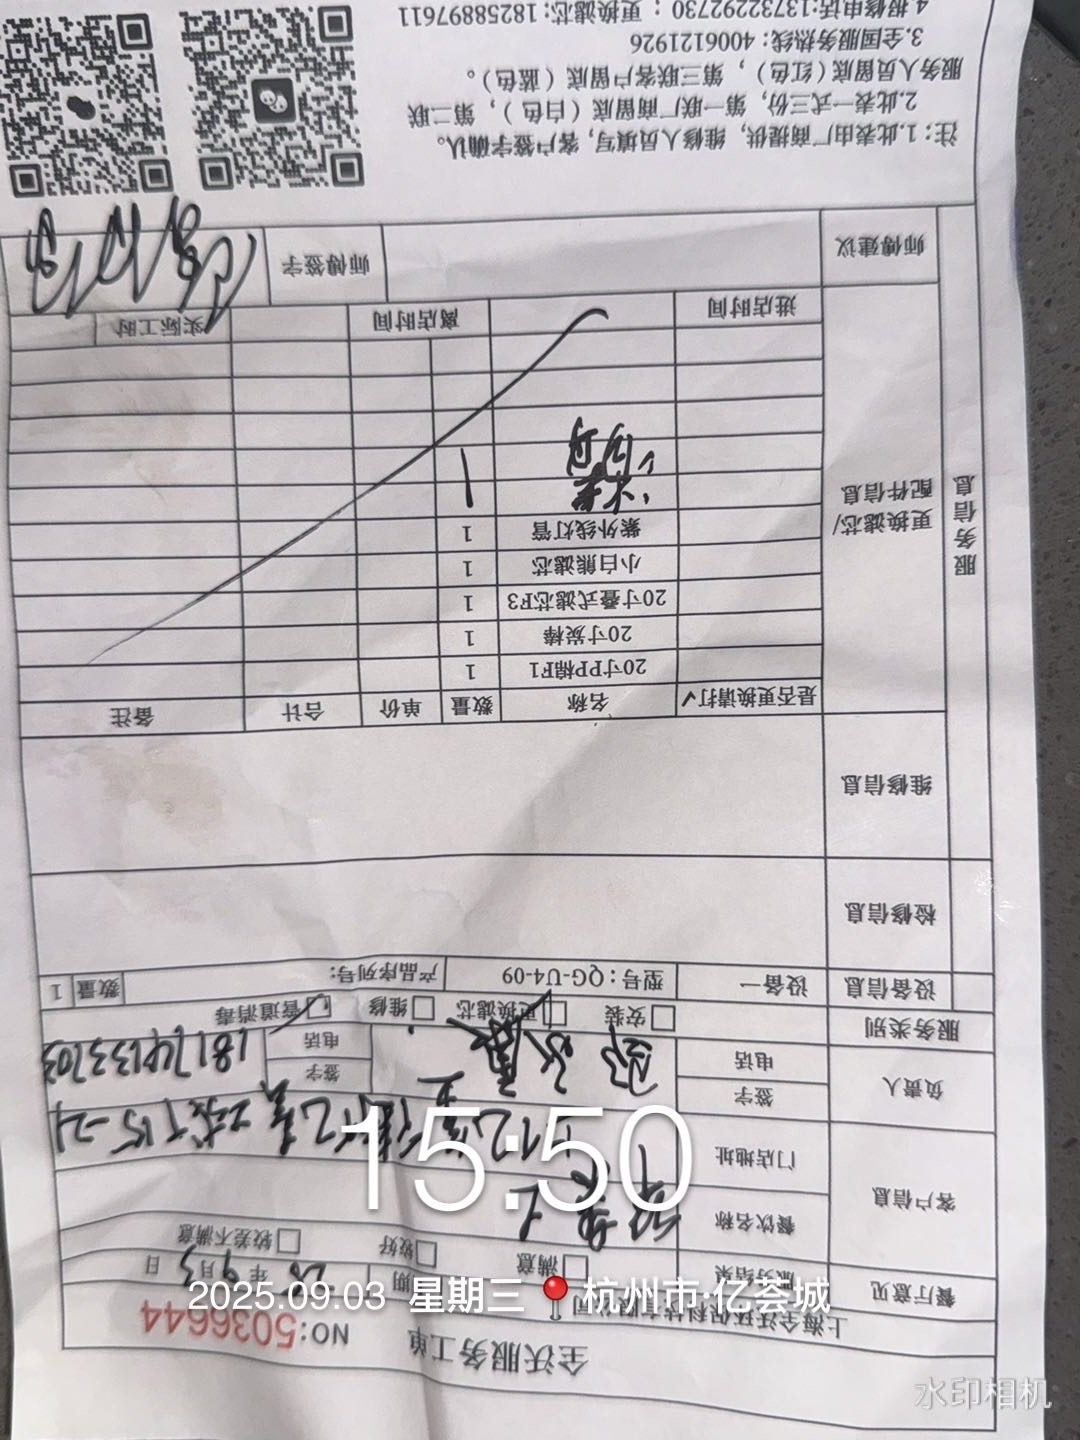 全沃服务工单
NO:5036644
上海全沃环保科技有限公司
25年9月3日
餐厅意见
服务结果
满意
较好
较差不满意
客户信息
餐饮名称
门店地址
15-21
负责人
签字
签字
电话
电话
18174133703
服务类别
安装
更换滤芯
维修
管道消毒
设备信息
设备一
型号：QG-U4-09
产品序列号：
数量
1
检修信息
服务信息
维修信息
更换滤芯/
配件信息
是否更换请打✓ 名称 数量 单价 合计 备注
20寸PP棉F1 1
20寸炭棒 1
20寸叠式滤芯F3 1
小白熊滤芯 1
紫外线灯管 1
1
进店时间
离店时间
实际工时
师傅建议
师傅签字
注：1.此表由厂商提供，维修人员填写，客户签字确认。
2.此表一式三份，第一联厂商留底（白色），第二联
服务人员留底（红色），第三联客户留底（蓝色）。
3.全国服务热线：4006121926
4.报修电话:13732292730 ；更换滤芯：18258897611
15:50
2025.09.03 星期三 杭州市·亿荟城
水印相机